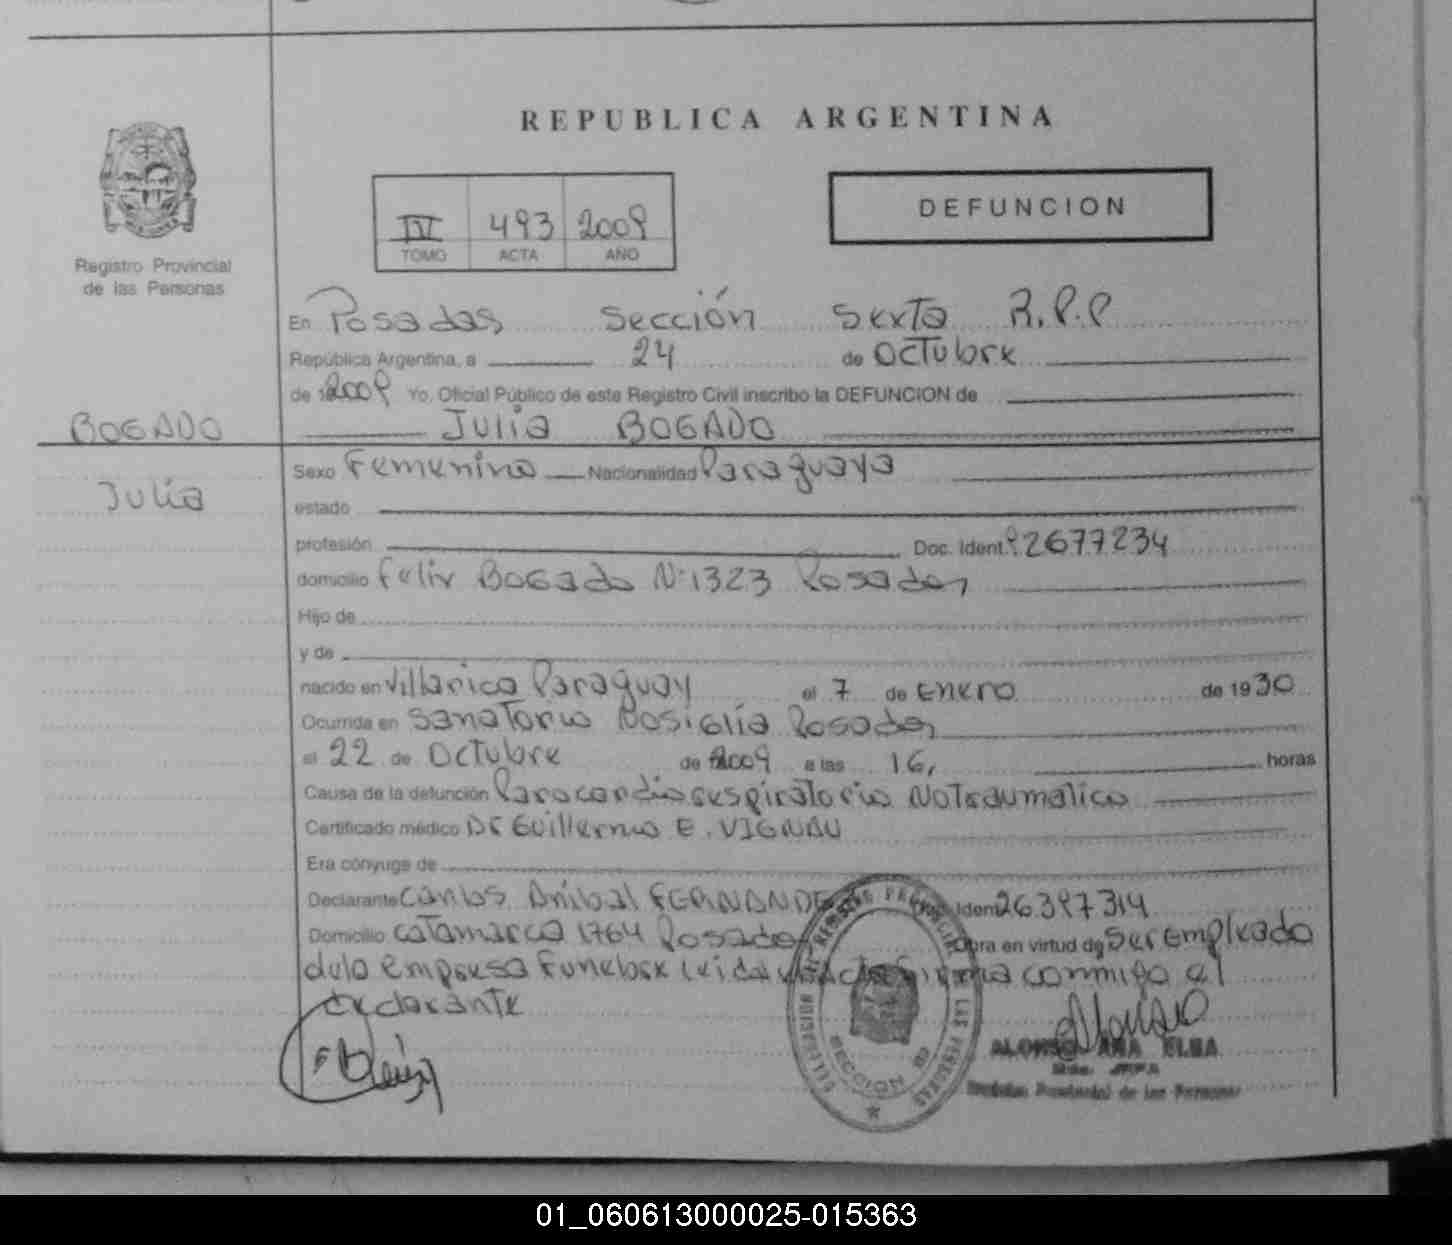 REPUBLICA ARGENTINA
IV 493 2009
TOMO ACTA AÑO
DEFUNCION
Registro Provincial
de las Personas
En Posadas Sección Sexta R.P.P
República Argentina, a 24 de Octubre
de 2009 Yo, Oficial Público de este Registro Civil inscribo la DEFUNCION de
BOGADO
Julia BOGADO
Julia
Sexo Femenino Nacionalidad Paraguaya
estado
profesión Doc. Ident. 92677234
domicilio Felix Bogado Nº 1323 Posadas
Hijo de
y de
nacido en Villarica Paraguay el 7 de Enero de 1930
Ocurrida en Sanatorio Nosiglia Posadas
el 22 de Octubre de 2009 a las 16, horas
Causa de la defunción Parocardiorespiratorio No Traumatico
Certificado médico Dr Guillermo E. VIGNAU
Era cónyuge de
Declarante Carlos Anibal FERNANDE Doc. Ident 26397314
Domicilio Catamarca 1764 Posadas Obra en virtud de Ser empleado
de la empresa Funebre Leida Acta Firma conmigo el
declarante
ALONSO ANA ELBA
Registro Provincial de las Personas
SECCION
01_060613000025-015363